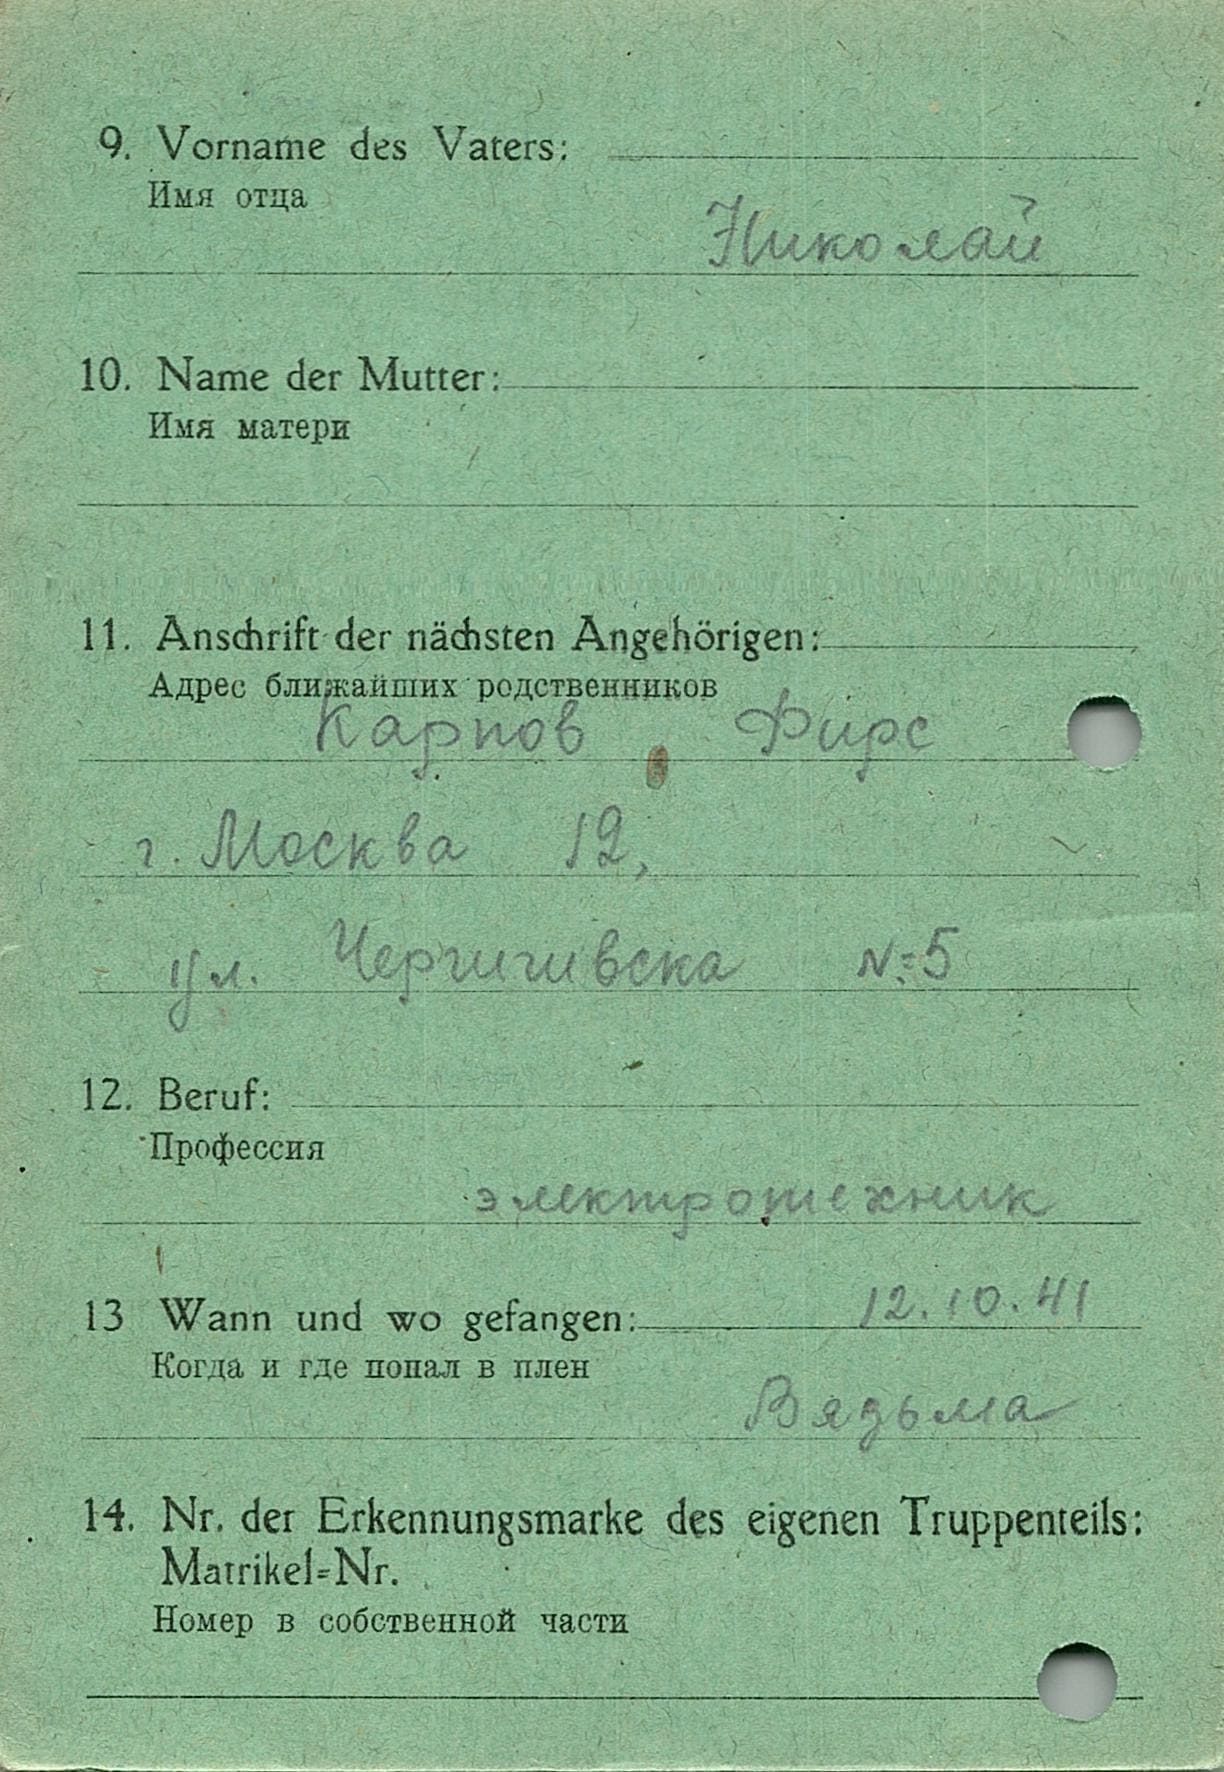 9. Vorname des Vaters:
Имя отца
Николай
10. Name der Mutter:
Имя матери
11. Anschrift der nächsten Angehörigen:
Адрес ближайших родственников
Карпов Фирс
г. Москва 12,
ул. Чергигивска №5
12. Beruf:
Профессия
электротехник
13 Wann und wo gefangen: 12.10.41
Когда и где попал в плен
Вядьма
14. Nr. der Erkennungsmarke des eigenen Truppenteils:
Matrikel=Nr.
Номер в собственной части